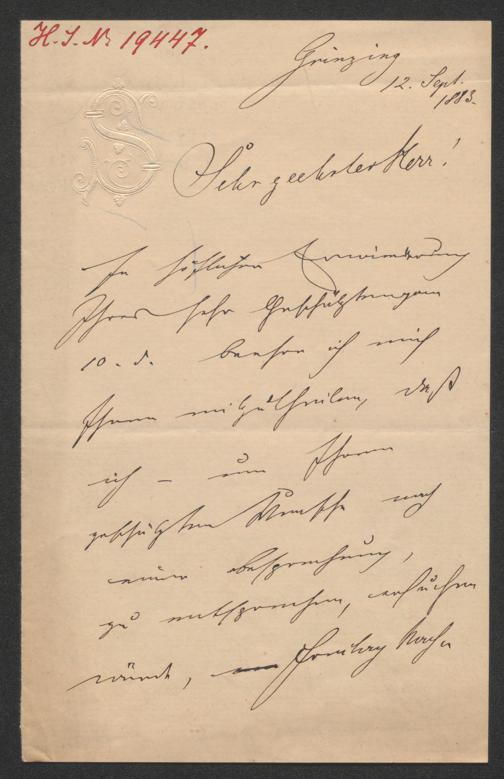 H. I. N. 19447.
Grinzing
12. Sept.
1883.
S
Sehr geehrter Herr!
In höflicher Erwiederung
Ihres sehr Geschätzten vom
10. d. beehre ich mich
Ihnen mitzutheilen, daß
ich – um Ihrem
geschätzten Wunsche nach
einer Besprechung,
zu entsprechen, ersuchen
würde, Samstag Nach